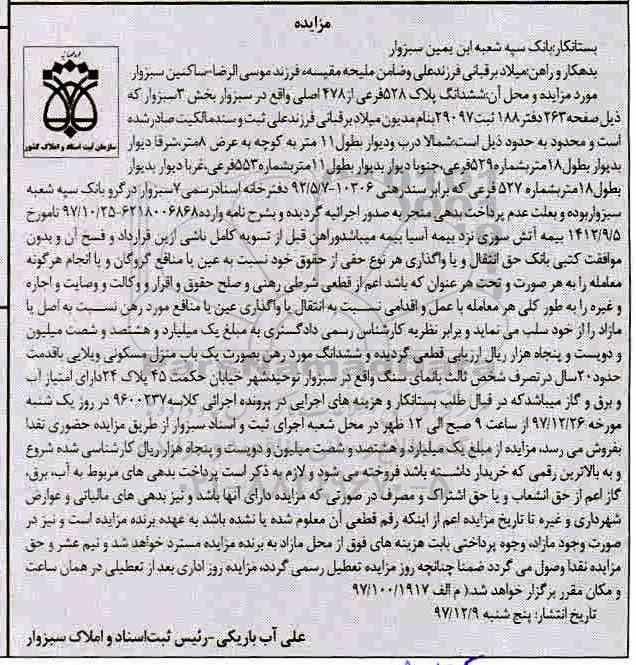 مزایده
سازمان ثبت اسناد و املاک کشور
بستانکار: بانک سپه شعبه ابن یمین سبزوار
بدهکار و راهن: میلاد برقبانی فرزند علی وضامن ملیحه مقیسه، فرزند موسی الرضا-ساکنین سبزوار
مورد مزایده و محل آن: ششدانگ پلاک ۵۲۸فرعی از۴۷۸ اصلی واقع در سبزوار بخش ۳سبزوار که
ذیل صفحه۲۶۳ دفتر۱۸۸ ثبت۲۹۰۹۷بنام مدیون میلاد برقبانی فرزند علی ثبت و سند مالکیت صادر شده
است و محدود به حدود ذیل است: شمالا درب ودیوار بطول۱۱ متر به کوچه به عرض ۸متر، شرقا دیوار
بدیوار بطول۱۸متربشماره۵۲۹فرعی، جنوبا دیوار بدیوار بطول۱۱متربشماره۵۵۳فرعی، غربا دیوار بدیوار
بطول۱۸متربشماره ۵۲۷ فرعی که برابر سند رهنی ۱۰۳۰۶-۹۲/۵/۷ دفترخانه اسناد رسمی۷سبزوار در گرو بانک سپه شعبه
سبزواربوده و بعلت عدم پرداخت بدهی منجر به صدور اجرائیه گردیده و بشرح نامه وارده۶۲۱۸۰۰۶۸۶۸-۹۷/۱۰/۲۵ تامورخ
۱۴۱۲/۹/۵ بیمه آتش سوزی نزد بیمه آسیا بیمه میباشدوراهن قبل از تسویه کامل ناشی ازین قرارداد و فسخ آن و بدون
موافقت کتبی بانک حق انتقال و یا واگذاری هر نوع حقی از حقوق خود نسبت به عین یا منافع گروگان و یا انجام هرگونه
معامله را به هر صورت و تحت هر عنوان که باشد اعم از قطعی شرطی رهنی و صلح حقوق و اقرار و وکالت و وصایت و اجاره
و غیره را به طور کلی هر معامله یا عمل و اقدامی نسبت به انتقال یا واگذاری عین یا منافع مورد رهن نسبت به اصل یا
مازاد را از خود سلب می نماید و برابر نظریه کارشناس رسمی دادگستری به مبلغ یک میلیارد و هشتصد و شصت میلیون
و دویست و پنجاه هزار ریال ارزیابی قطعی گردیده و ششدانگ مورد رهن بصورت یک باب منزل مسکونی ویلایی باقدمت
حدود۲۰سال درتصرف شخص ثالث بانمای سنگ واقع در سبزوار توحیدشهر خیابان حکمت ۴۵ پلاک ۲۴دارای امتیاز آب
و برق و گاز میباشدکه در قبال طلب بستانکار و هزینه های اجرایی در پرونده اجرائی کلاسه۹۶۰۰۲۳۷ در روز یک شنبه
مورخه ۹۷/۱۲/۲۶ از ساعت ۹ صبح الی ۱۲ ظهر در محل شعبه اجرای ثبت و اسناد سبزوار از طریق مزایده حضوری نقدا
بفروش می رسد، مزایده از مبلغ یک میلیارد و هشتصد و شصت میلیون و دویست و پنجاه هزار ریال کارشناسی شده شروع
و به بالاترین رقمی که خریدار داشته باشد فروخته می شود و لازم به ذکر است پرداخت بدهی های مربوط به آب، برق،
گاز اعم از حق انشعاب و یا حق اشتراک و مصرف در صورتی که مزایده دارای آنها باشد و نیز بدهی های مالیاتی و عوارض
شهرداری و غیره تا تاریخ مزایده اعم از اینکه رقم قطعی آن معلوم شده یا نشده باشد به عهده برنده مزایده است و نیز در
صورت وجود مازاد، وجوه پرداختی بابت هزینه های فوق از محل مازاد به برنده مزایده مسترد خواهد شد و نیم عشر و حق
مزایده نقدا وصول می گردد ضمنا چنانچه روز مزایده تعطیل رسمی گردد، مزایده روز اداری بعد از تعطیلی در همان ساعت
و مکان مقرر برگزار خواهد شد.( م الف ۹۷/۱۰۰/۱۹۱۷
تاریخ انتشار: پنج شنبه ۹۷/۱۲/۹
علی آب باریکی -رئیس ثبت اسناد و املاک سبزوار